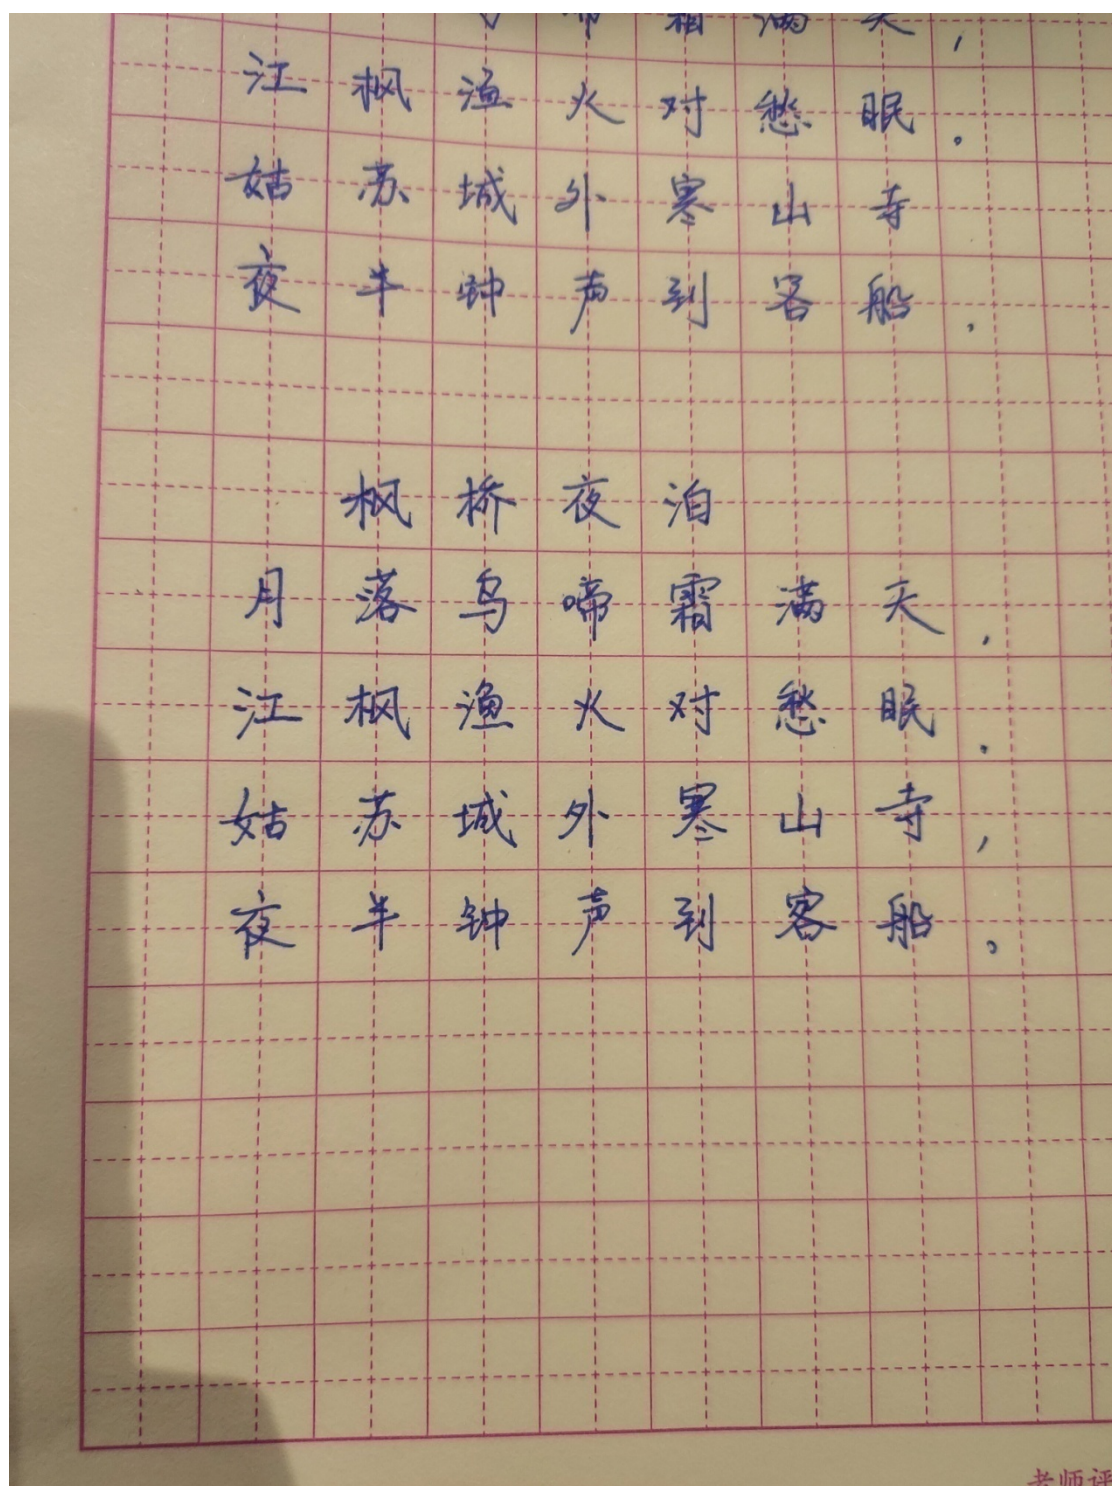 啼霜满天，
江枫渔火对愁眠。
姑苏城外寒山寺
夜半钟声到客船.
枫桥夜泊
月落乌啼霜满天,
江枫渔火对愁眠.
姑苏城外寒山寺,
夜半钟声到客船。
老师评